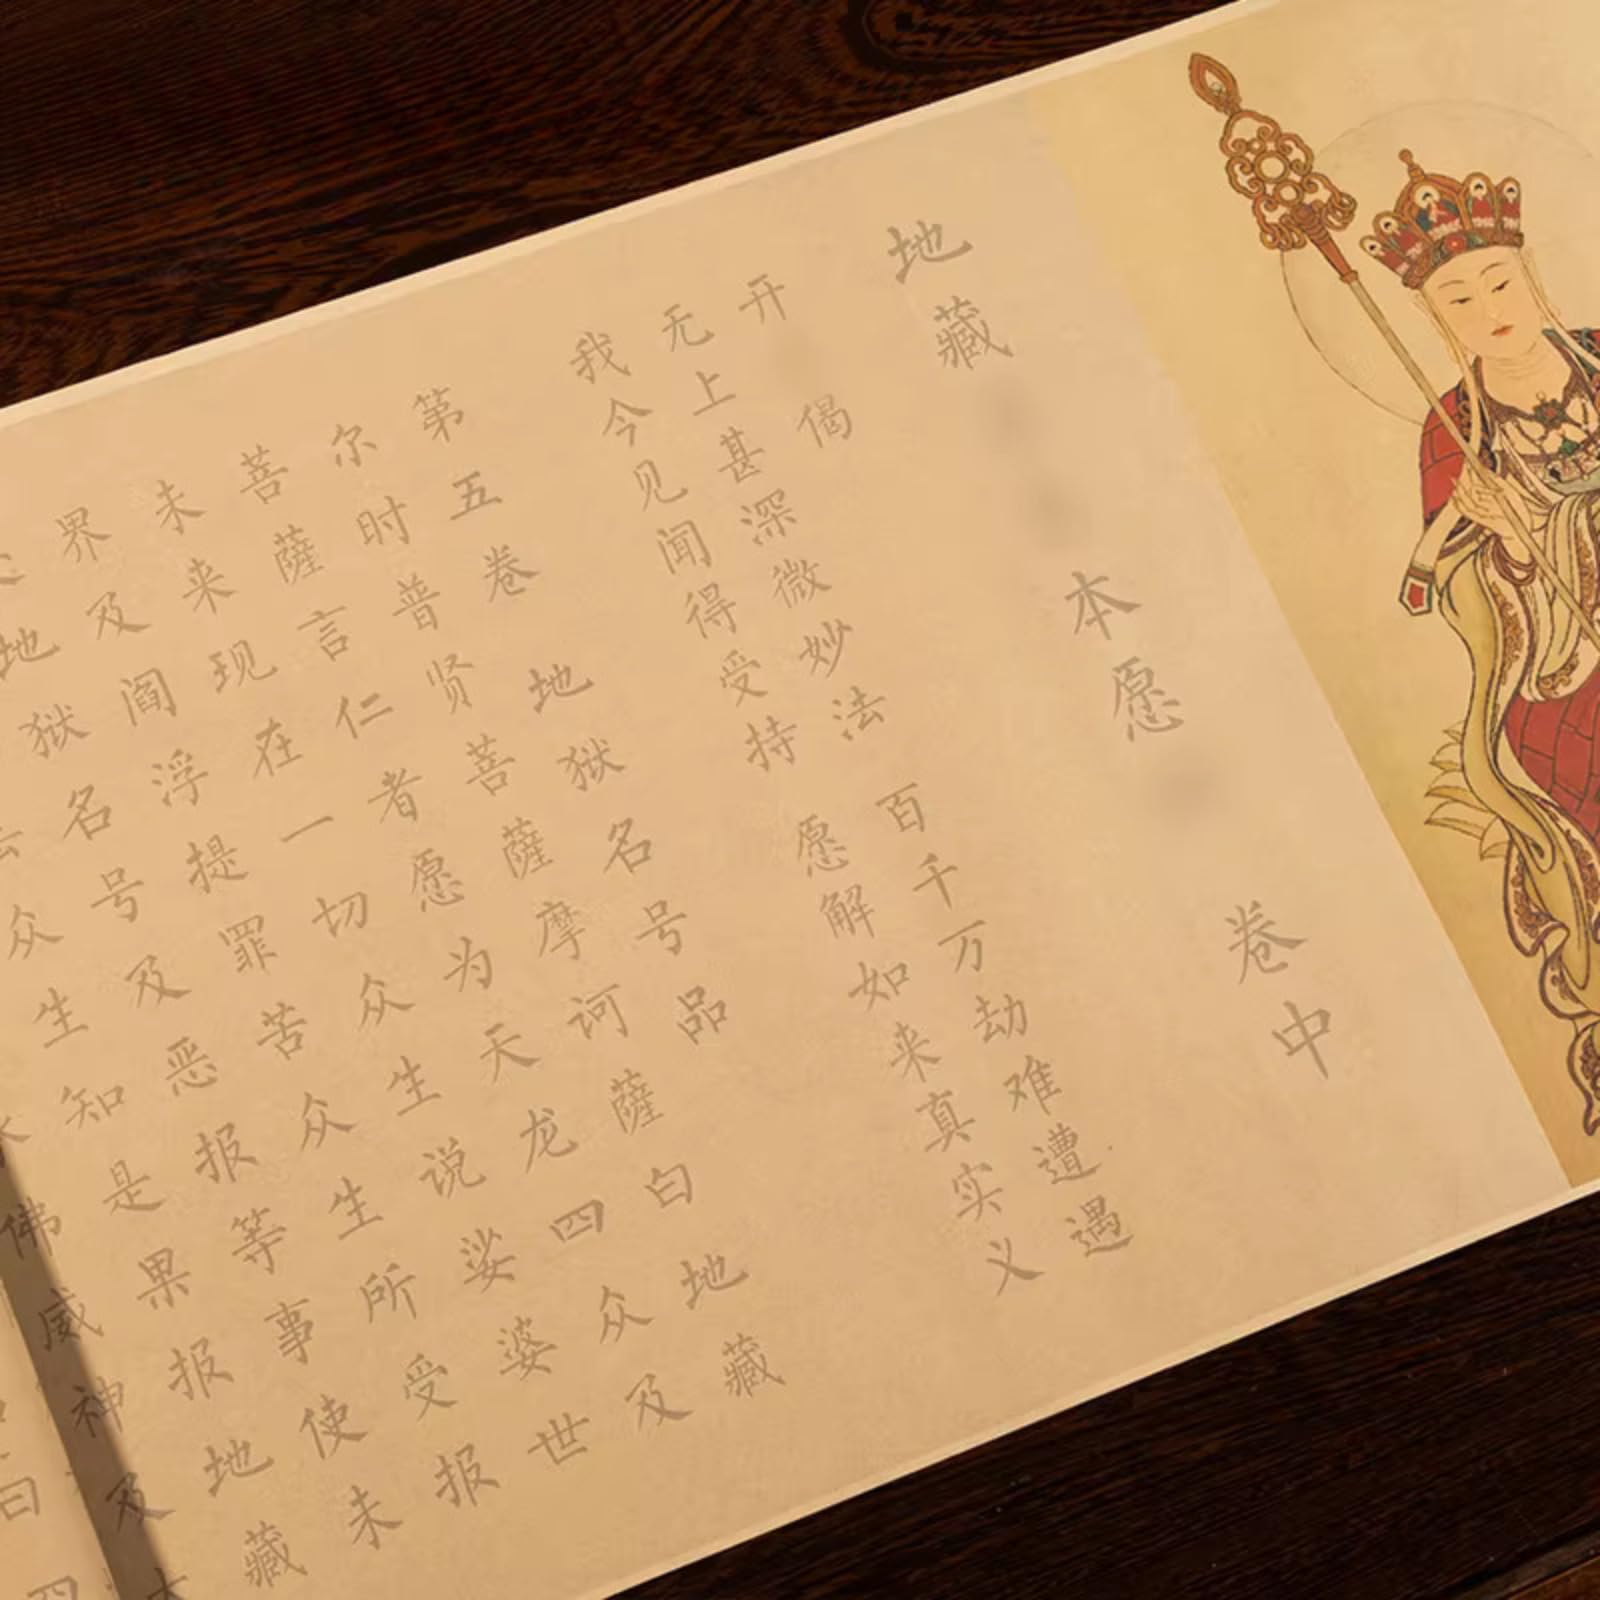 地藏 本愿 卷中
开 偈
无上甚深微妙法 百千万劫难遭遇
我今见闻得受持 愿解如来真实义
第五卷 地狱名号品
尔时普贤菩薩摩诃薩白地藏
菩薩言仁者愿为天龙四众及
未来现在一切众生说娑婆世
界及阎浮提罪苦众生所受报
地狱名号及恶报等事使未
众生知是果报地藏
佛威神及
曰
四